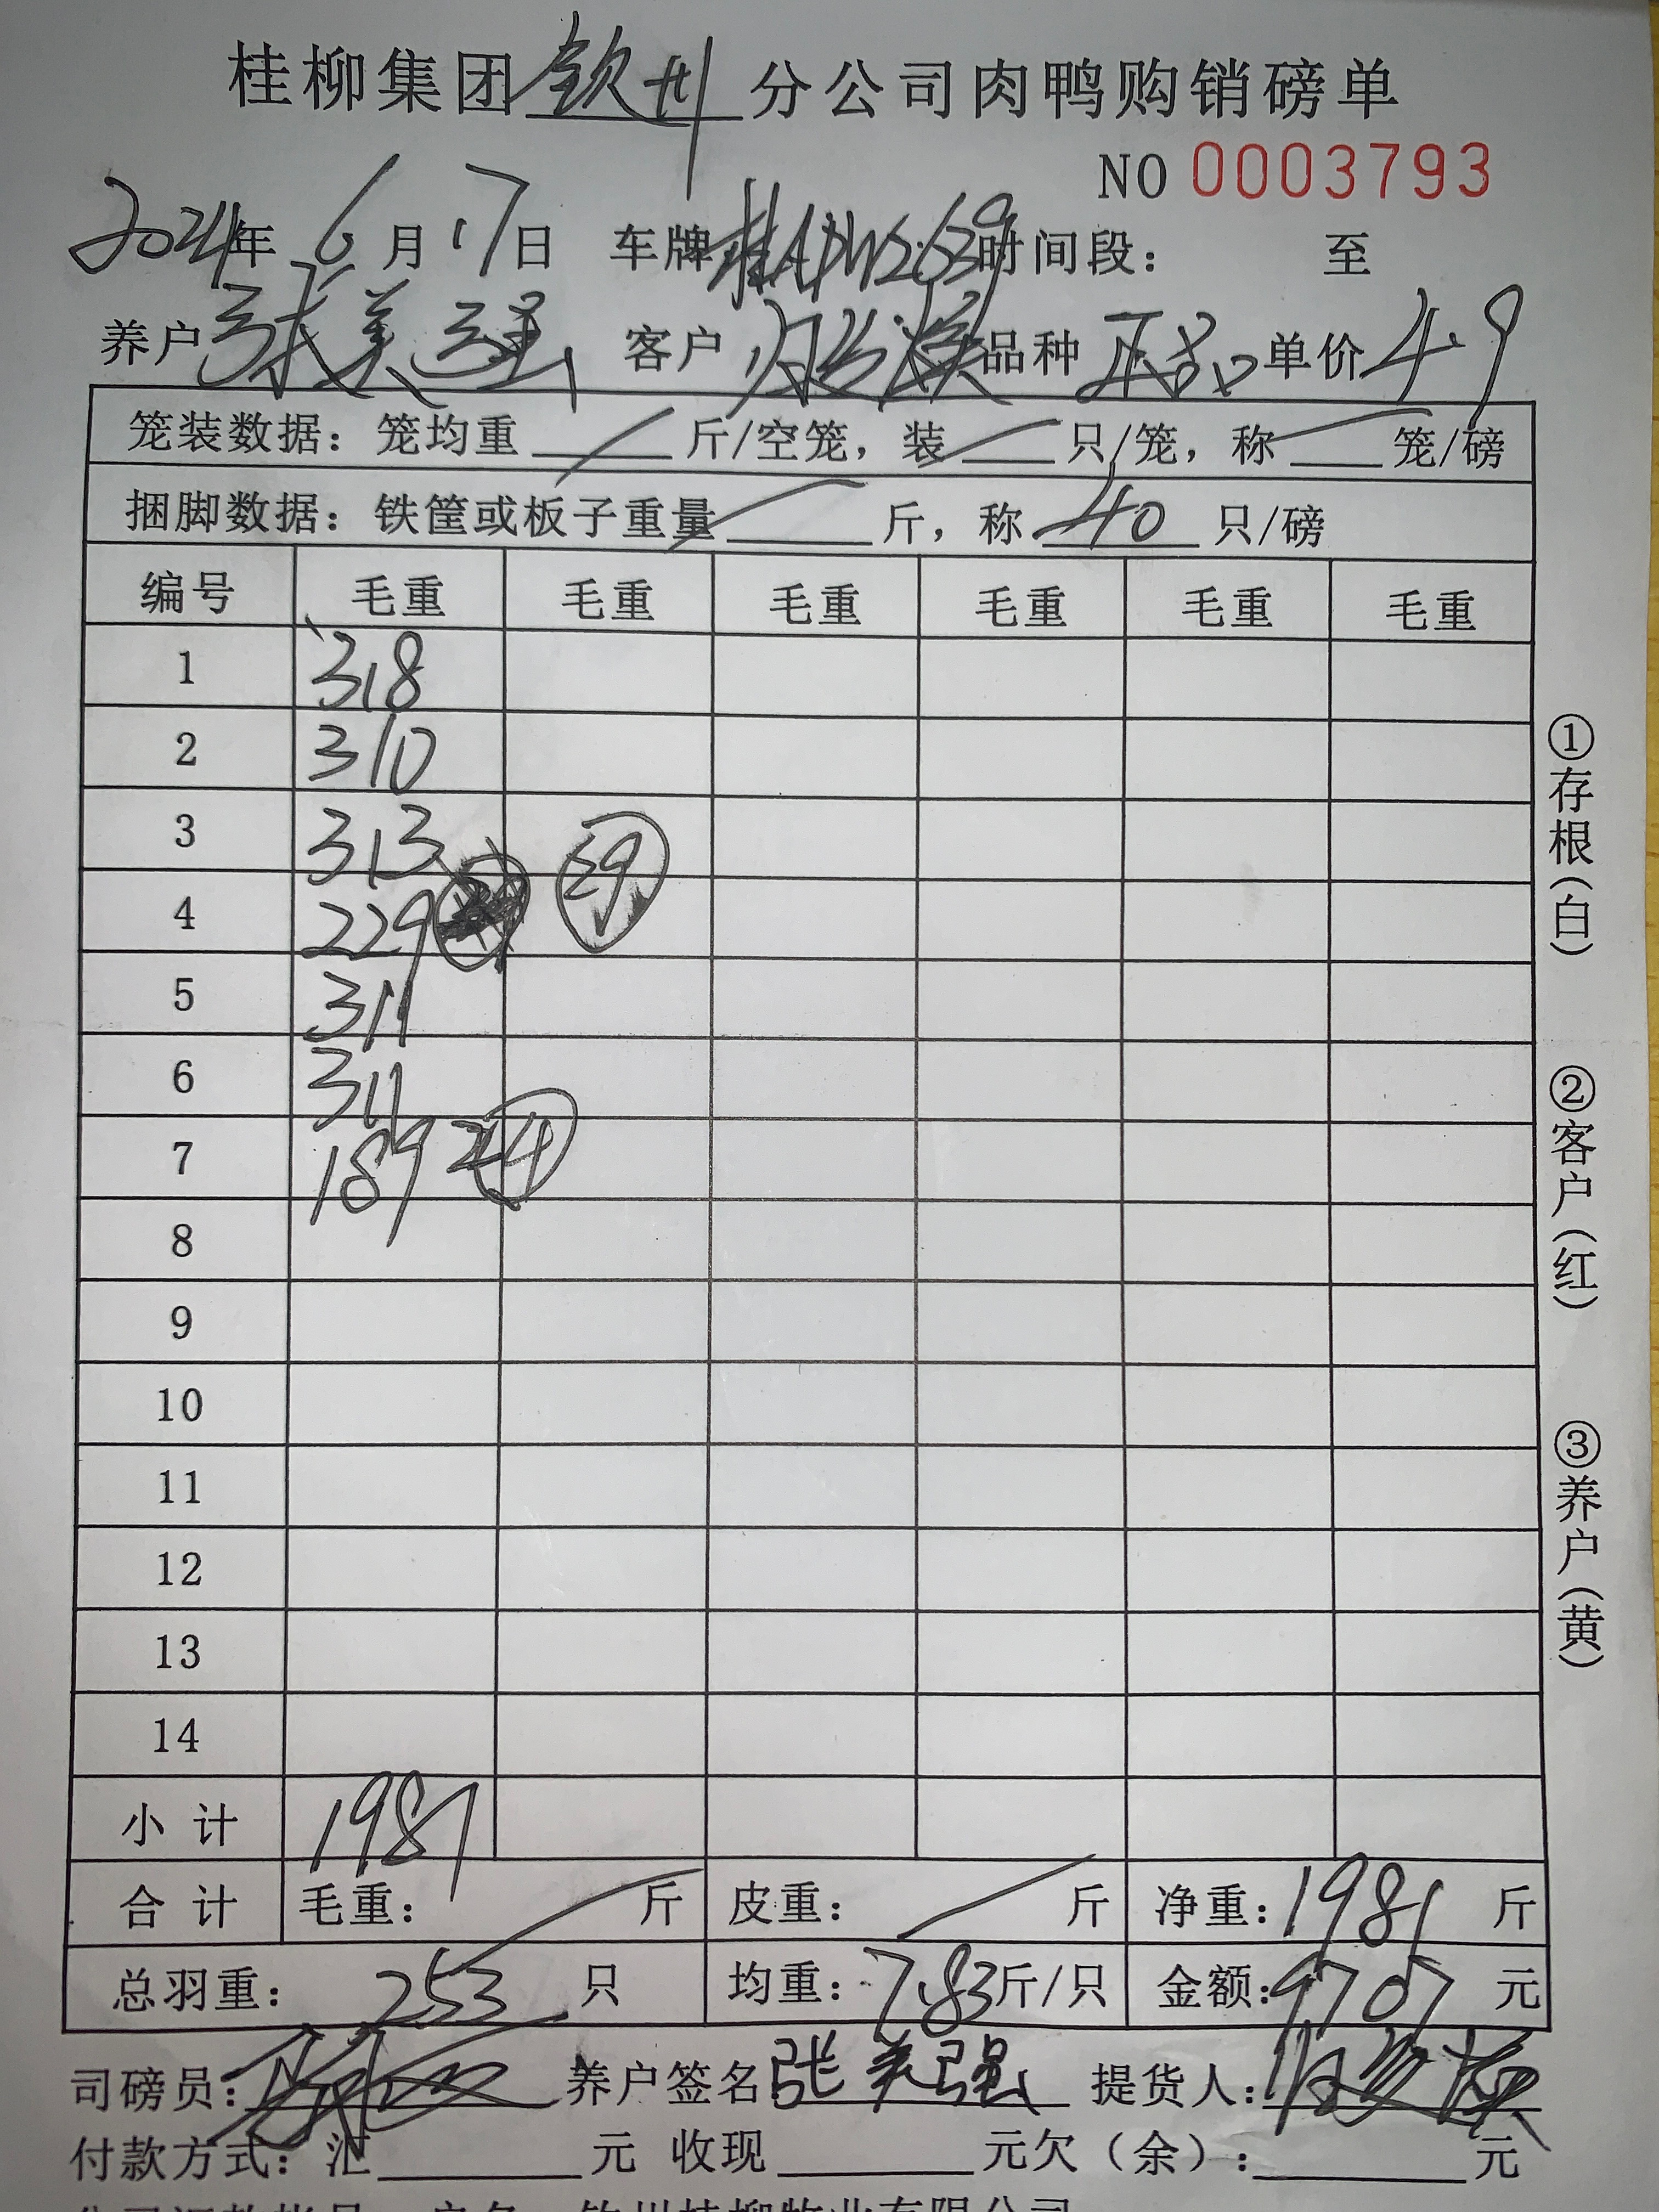 桂柳集团钦州分公司肉鸭购销磅单
NO 0003793
2024年 6月17日 车牌桂ADW2639时间段： 至
养户张美强 客户 品种正品单价4.9
笼装数据：笼均重 斤/空笼，装 只/笼，称 笼/磅
捆脚数据：铁筐或板子重量 斤，称 40 只/磅
编号 毛重 毛重 毛重 毛重 毛重 毛重
1 318
2 310
3 313
4 229 29
5 311
6 311
7 189 24
8
9
10
11
12
13
14
小计 1981
合计 毛重： 斤 皮重： 斤 净重：1981 斤
总羽重：253 只 均重：7.83斤/只 金额：9707 元
司磅员： 养户签名张美强 提货人：
付款方式：汇 元 收现 元欠（余）： 元
①存根（白）
②客户（红）
③养户（黄）